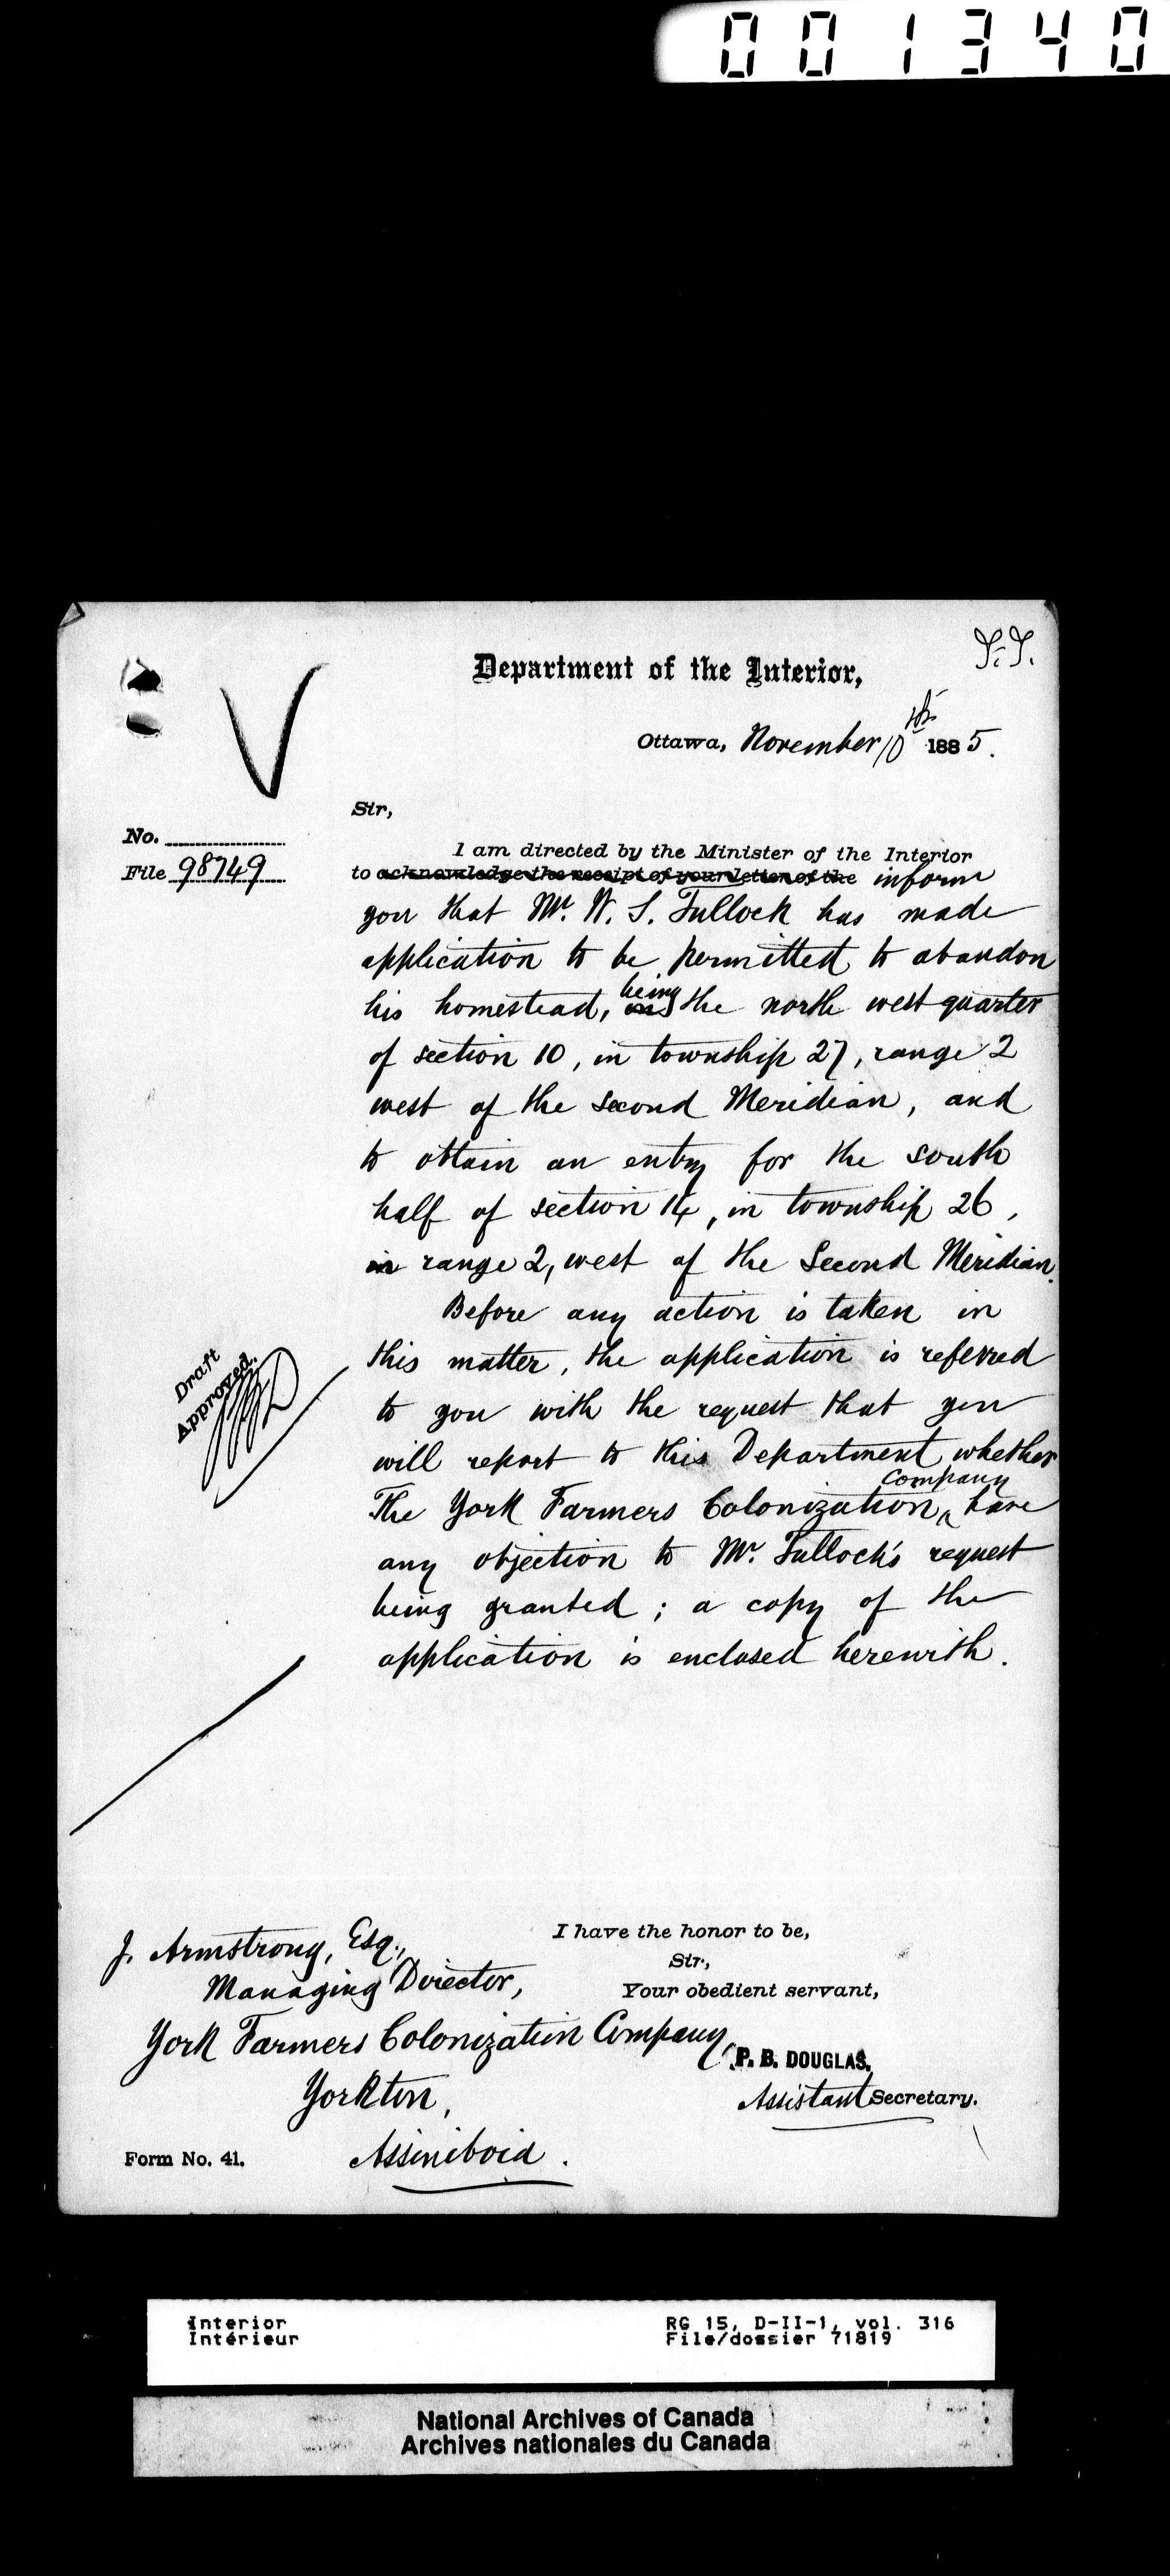 001340
Department of the Interior,
Ottawa, November 10th 1885.
Sir,
No.
File 98749
I am directed by the Minister of the Interior
to acknowledge the receipt of your letter of the inform
you that Mr. W. S. Tullock has made
application to be permitted to abandon
his homestead, being the north west quarter
of section 10, in township 27, range 2
west of the second Meridian, and
to obtain an entry for the south
half of section 14, in township 26,
in range 2, west of the Second Meridian.
Before any action is taken in
this matter, the application is referred
Draft
Approved.
to you with the request that you
will report to this Department whether
The York Farmers Colonization Company have
any objection to Mr. Tullock's request
being granted; a copy of the
application is enclosed herewith.
I have the honor to be,
Sir,
Your obedient servant,
P. B. DOUGLAS,
Assistant Secretary.
J. Armstrong, Esq.,
Managing Director,
York Farmers Colonization Company,
Yorkton,
Assiniboia.
Form No. 41.
Interior
Intérieur
RG 15, D-II-1, vol. 316
File/dossier 71819
National Archives of Canada
Archives nationales du Canada